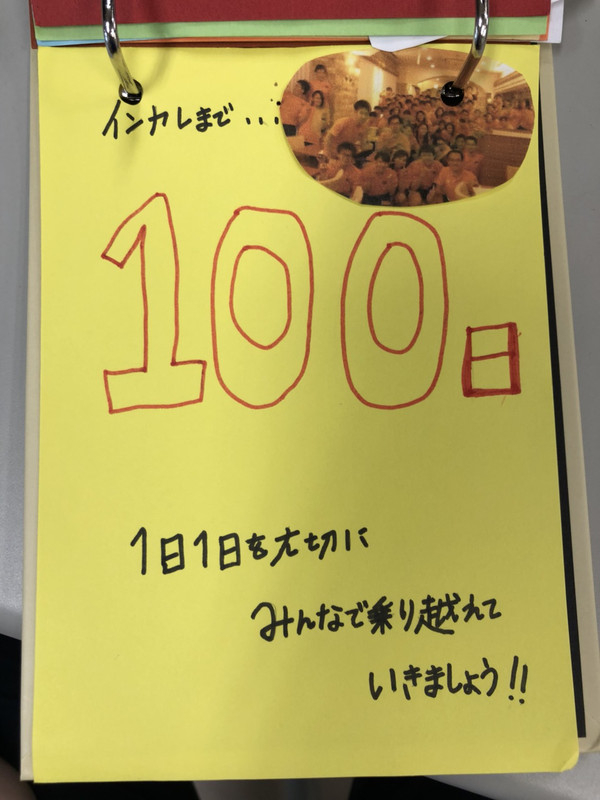 インカレまで...
100日
1日1日を大切に
みんなで乗り越えて
いきましょう!!